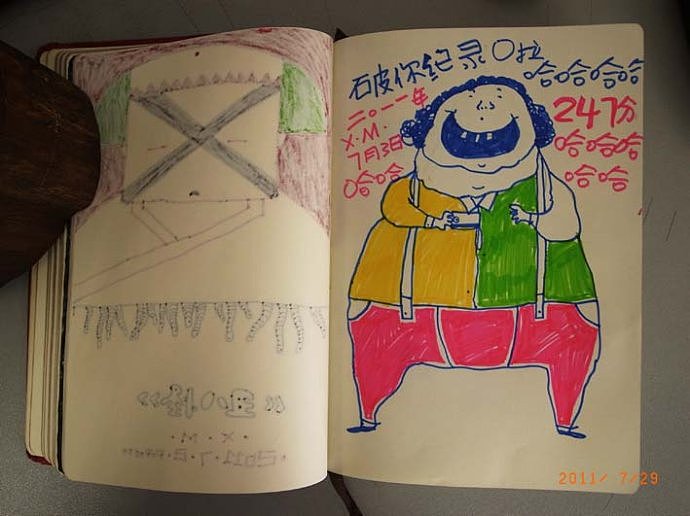 石皮你纪录〇拉
哈哈哈哈
二〇一一年
X.M.
7月3日
哈哈
247分
哈哈哈
哈哈
2011/ 7/29